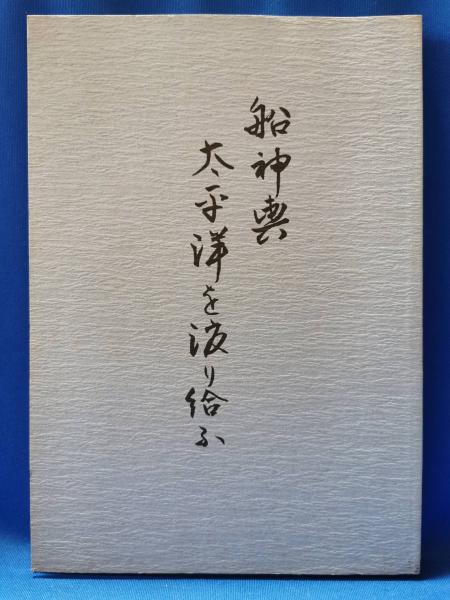 船神輿
太平洋を渡り給ふ